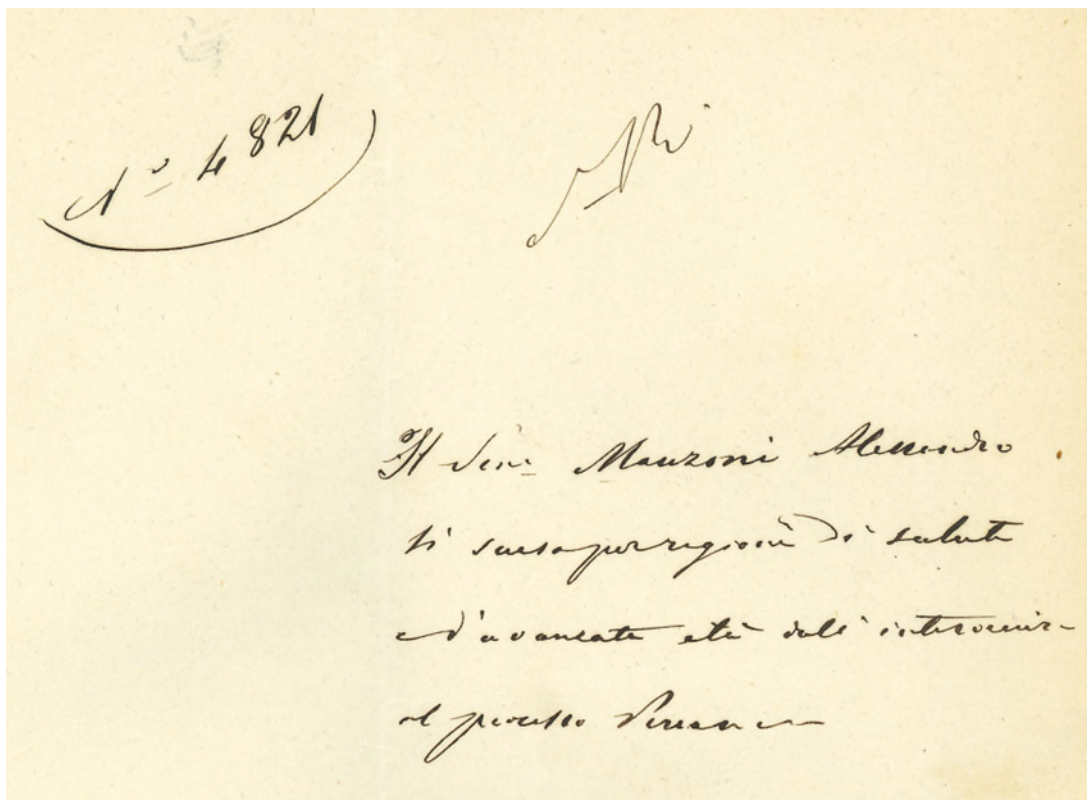 Nº 4821
Il Sen.e Manzoni Alessandro
si scusa per ragioni di salute
e d'avanzata età dall'intervenire
al processo Persano